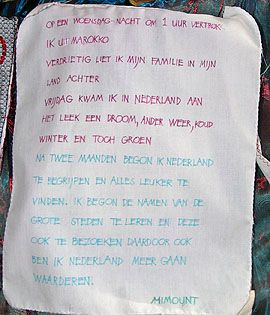 OP EEN WOENSDAG-NACHT OM 1 UUR VERTROK
IK UIT MAROKKO
VERDRIETIG LIET IK MIJN FAMILIE IN MIJN
LAND ACHTER
VRIJDAG KWAM IK IN NEDERLAND AAN
HET LEEK EEN DROOM, ANDER WEER, KOUD
WINTER EN TOCH GROEN
NA TWEE MAANDEN BEGON IK NEDERLAND
TE BEGRIJPEN EN ALLES LEUKER TE
VINDEN. IK BEGON DE NAMEN VAN DE
GROTE STEDEN TE LEREN EN DEZE
OOK TE BEZOEKEN DAARDOOR OOK
BEN IK NEDERLAND MEER GAAN
WAARDEREN.
MIMOUNT